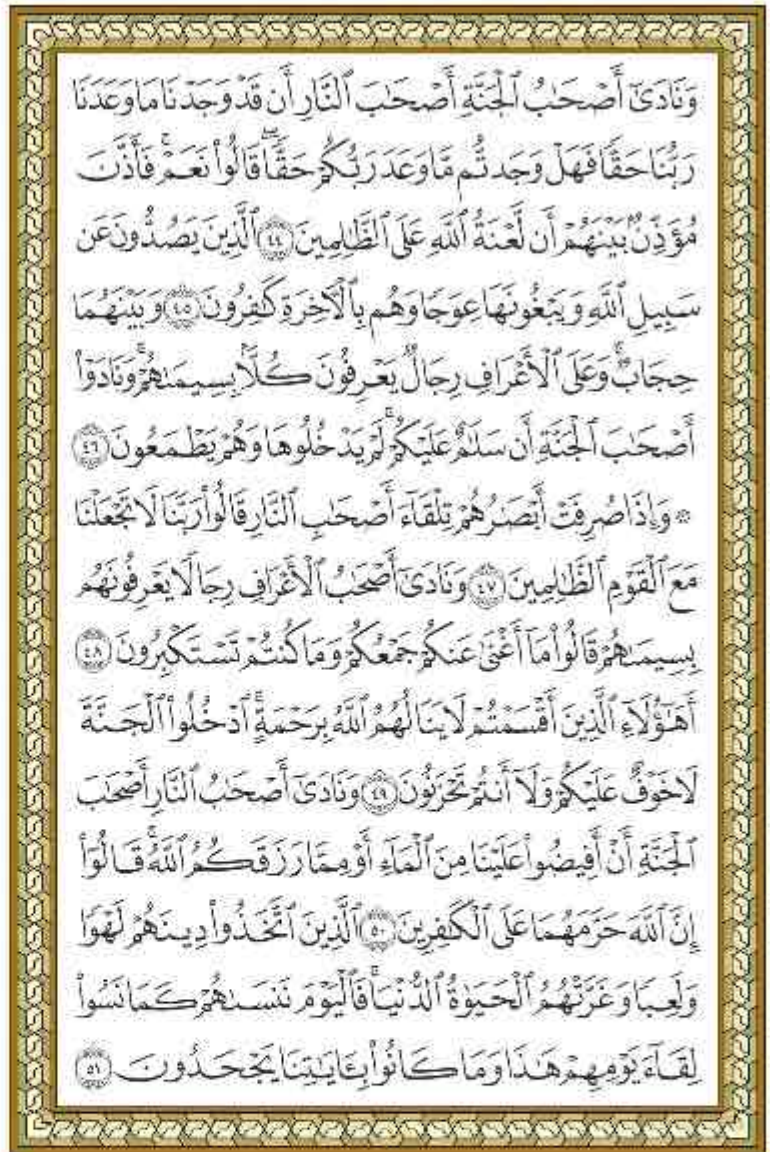 وَنَادَىٰٓ أَصْحَـٰبُ ٱلْجَنَّةِ أَصْحَـٰبَ ٱلنَّارِ أَن قَدْ وَجَدْنَا مَا وَعَدَنَا
رَبُّنَا حَقًّا فَهَلْ وَجَدتُّم مَّا وَعَدَ رَبُّكُمْ حَقًّا ۖ قَالُوا۟ نَعَمْ ۚ فَأَذَّنَ
مُؤَذِّنٌۢ بَيْنَهُمْ أَن لَّعْنَةُ ٱللَّهِ عَلَى ٱلظَّـٰلِمِينَ ٤٤ ٱلَّذِينَ يَصُدُّونَ عَن
سَبِيلِ ٱللَّهِ وَيَبْغُونَهَا عِوَجًا وَهُم بِٱلْـَٔاخِرَةِ كَـٰفِرُونَ ٤٥ وَبَيْنَهُمَا
حِجَابٌ ۚ وَعَلَى ٱلْأَعْرَافِ رِجَالٌ يَعْرِفُونَ كُلًّۢا بِسِيمَىٰهُمْ ۚ وَنَادَوْا۟
أَصْحَـٰبَ ٱلْجَنَّةِ أَن سَلَـٰمٌ عَلَيْكُمْ ۚ لَمْ يَدْخُلُوهَا وَهُمْ يَطْمَعُونَ ٤٦
۞ وَإِذَا صُرِفَتْ أَبْصَـٰرُهُمْ تِلْقَآءَ أَصْحَـٰبِ ٱلنَّارِ قَالُوا۟ رَبَّنَا لَا تَجْعَلْنَا
مَعَ ٱلْقَوْمِ ٱلظَّـٰلِمِينَ ٤٧ وَنَادَىٰٓ أَصْحَـٰبُ ٱلْأَعْرَافِ رِجَالًا يَعْرِفُونَهُم
بِسِيمَىٰهُمْ قَالُوا۟ مَآ أَغْنَىٰ عَنكُمْ جَمْعُكُمْ وَمَا كُنتُمْ تَسْتَكْبِرُونَ ٤٨
أَهَـٰٓؤُلَآءِ ٱلَّذِينَ أَقْسَمْتُمْ لَا يَنَالُهُمُ ٱللَّهُ بِرَحْمَةٍ ۚ ٱدْخُلُوا۟ ٱلْجَنَّةَ
لَا خَوْفٌ عَلَيْكُمْ وَلَآ أَنتُمْ تَحْزَنُونَ ٤٩ وَنَادَىٰٓ أَصْحَـٰبُ ٱلنَّارِ أَصْحَـٰبَ
ٱلْجَنَّةِ أَنْ أَفِيضُوا۟ عَلَيْنَا مِنَ ٱلْمَآءِ أَوْ مِمَّا رَزَقَكُمُ ٱللَّهُ ۚ قَالُوٓا۟
إِنَّ ٱللَّهَ حَرَّمَهُمَا عَلَى ٱلْكَـٰفِرِينَ ٥٠ ٱلَّذِينَ ٱتَّخَذُوا۟ دِينَهُمْ لَهْوًا
وَلَعِبًا وَغَرَّتْهُمُ ٱلْحَيَوٰةُ ٱلدُّنْيَا ۚ فَٱلْيَوْمَ نَنسَىٰهُمْ كَمَا نَسُوا۟
لِقَآءَ يَوْمِهِمْ هَـٰذَا وَمَا كَانُوا۟ بِـَٔايَـٰتِنَا يَجْحَدُونَ ٥١